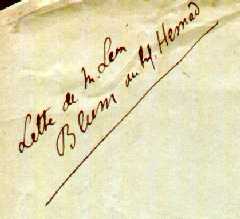 Lettre de M. Léon
Blum au Prf. Hesnard